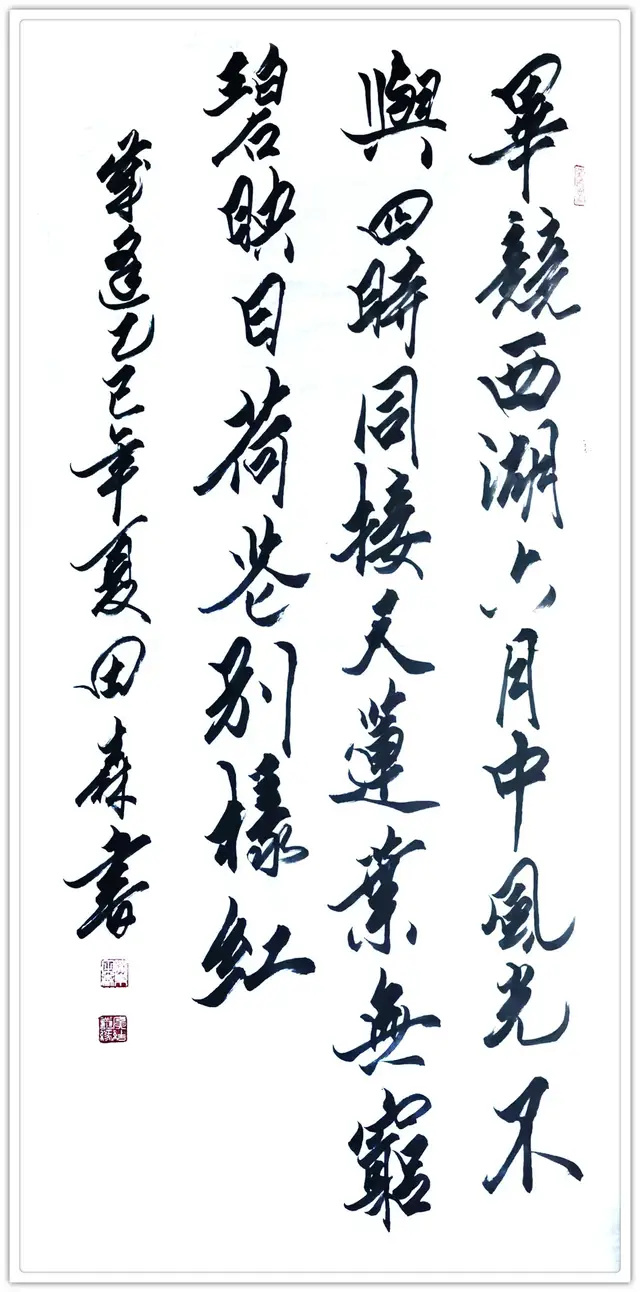 畢競西湖六月中風光不
與四時同接天蓮葉無窮
碧映日荷花别樣紅
歲逢乙巳年夏田森書